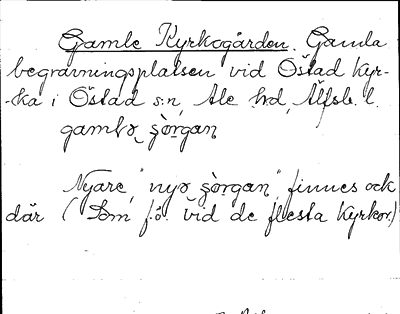 Gamle Kyrkogården. Gamla
begravningsplatsen vid Östad kyr-
-ka i Östad s:n, Ale hd, Älfsb. l.
gamlə şòrgan
Nyare, "nyə şòrgan" finnes ock
där (Som f.ö. vid de flesta kyrkor.)